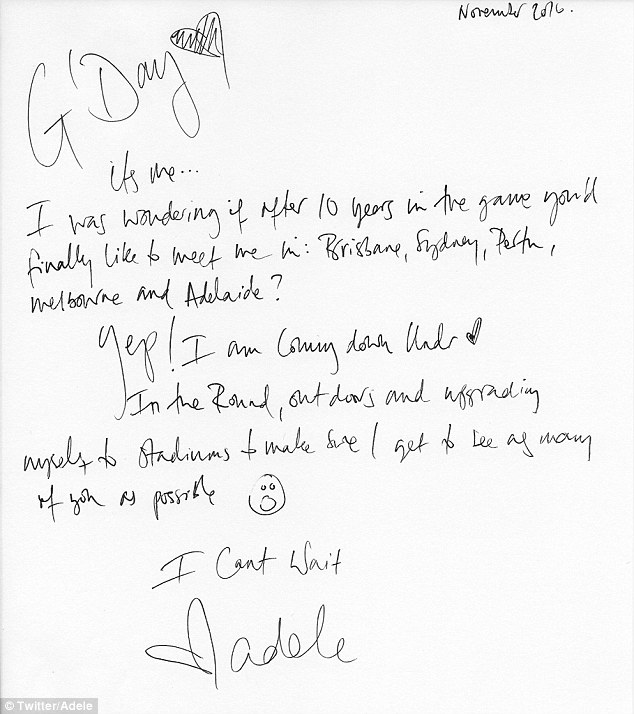 November 2016.
G'Day
its me...
I was wondering if after 10 years in the game you'd
finally like to meet me in: Brisbane, Sydney, Perth,
melbourne and Adelaide?
Yep! I am Coming down Under
In the Round, outdoors and upgrading
myself to Stadiums to make sure I get to see as many
of you as possible
I Cant Wait
adele
© Twitter/Adele